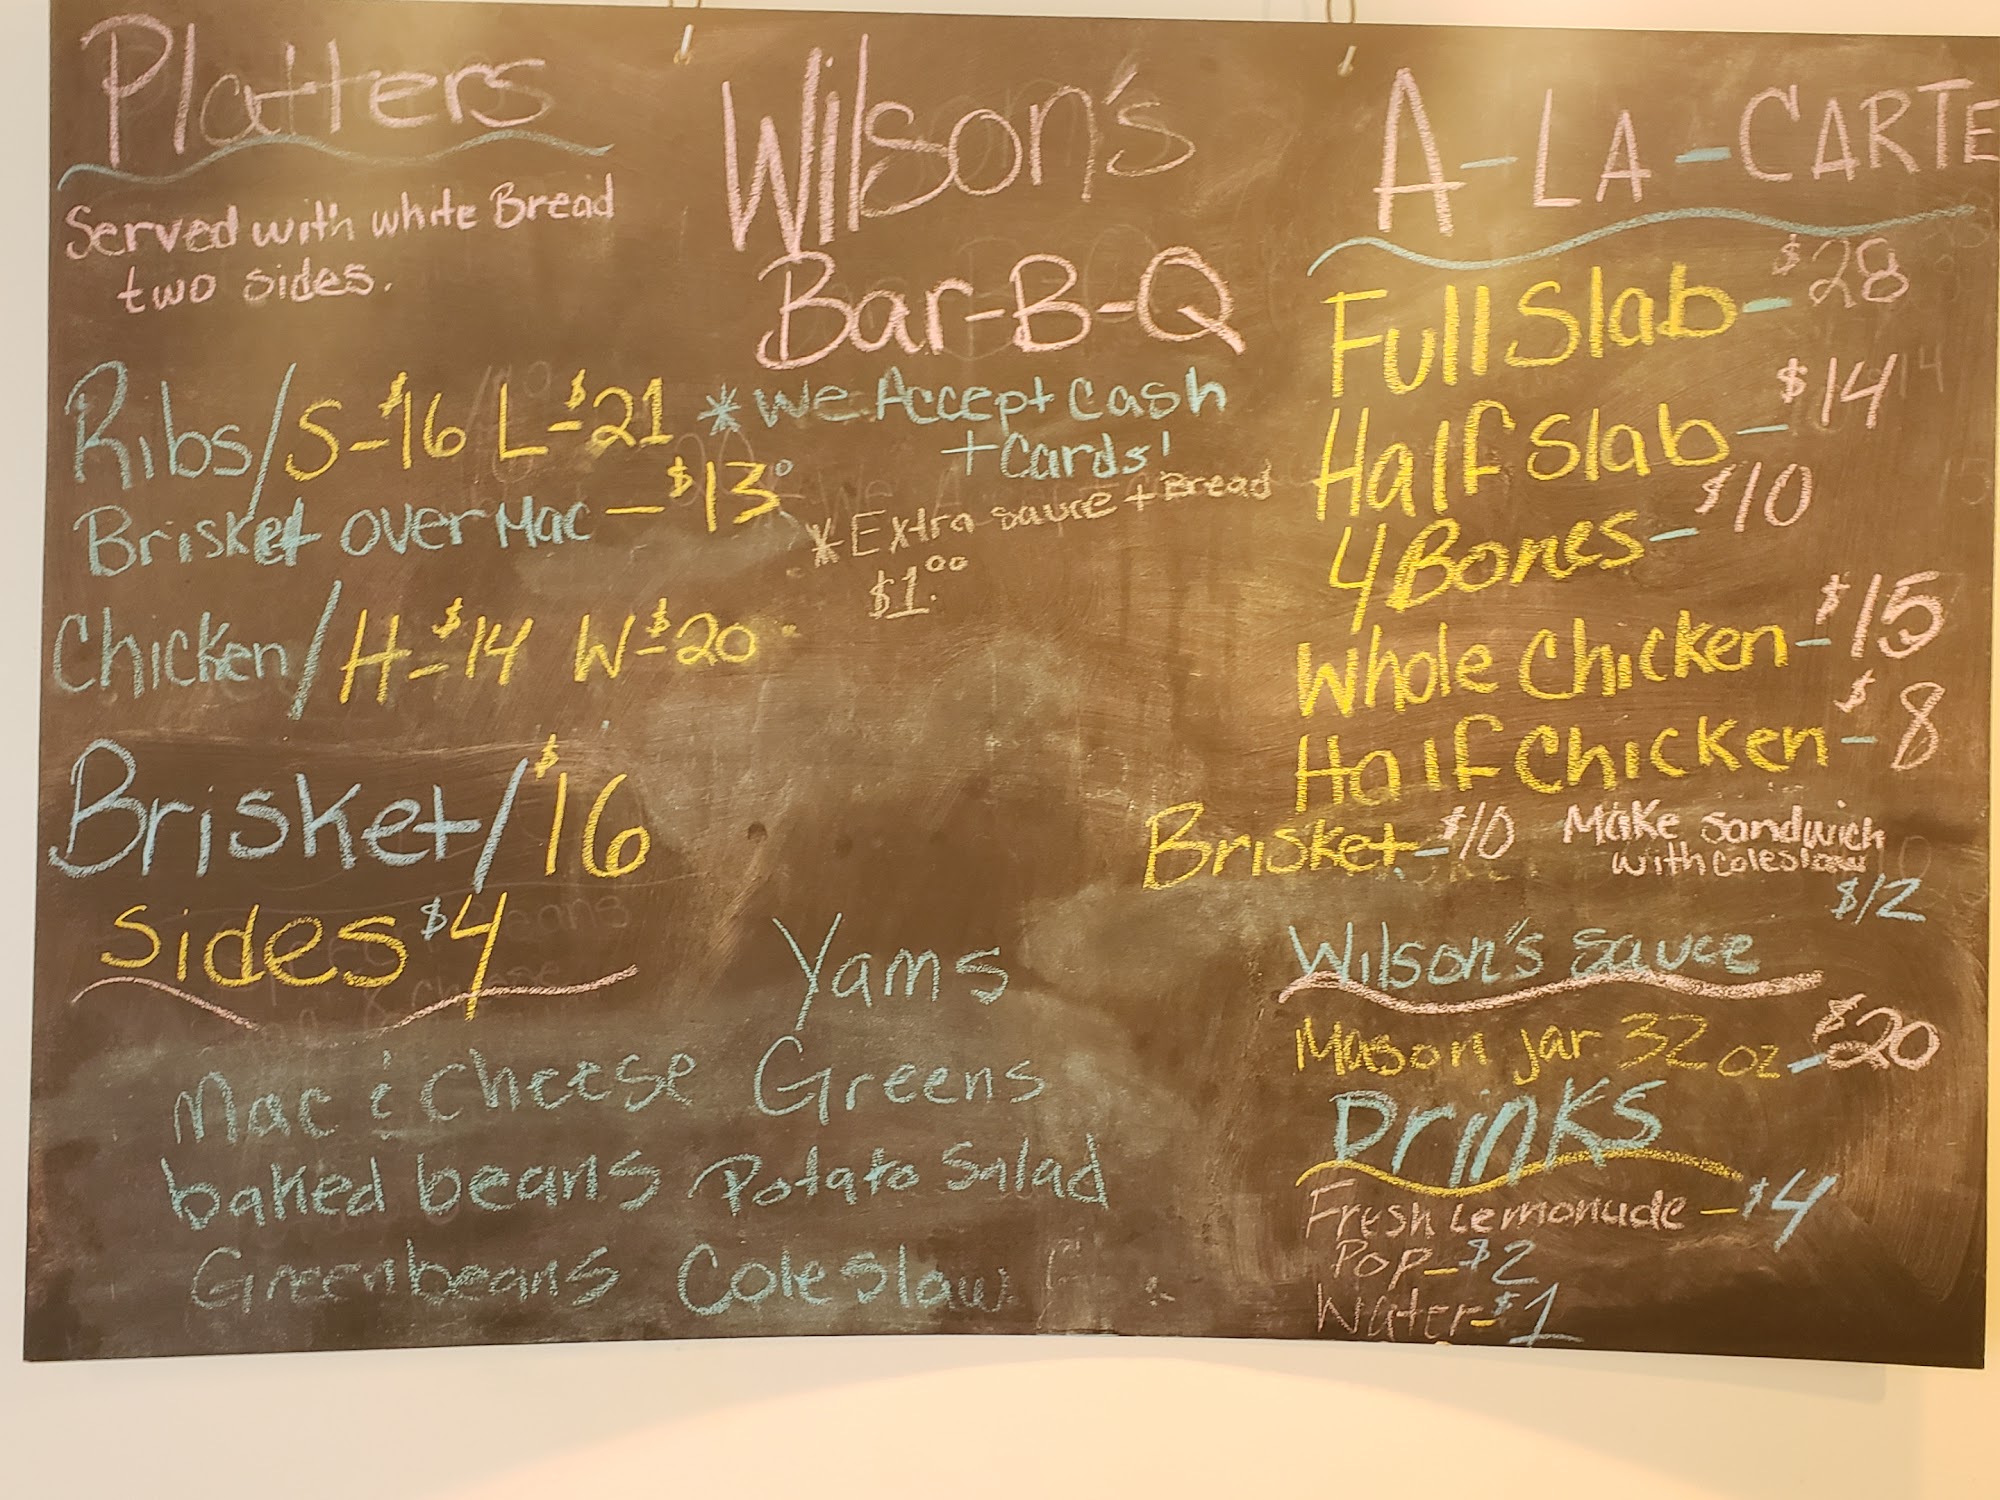 Platters
Served with white Bread
two sides.
Ribs/ S-$16 L-$21
Brisket over Mac - $13
Chicken/ H-$14 W-$20
Brisket/ $16
Sides $4
Mac & cheese
baked beans
Greenbeans
Yams
Greens
Potato Salad
Coleslaw
Wilson's
Bar-B-Q
* We Accept Cash
+ Cards!
* Extra sauce + Bread
$1.00
A-LA-CARTE
Full Slab - $28
Half Slab - $14
4 Bones - $10
Whole Chicken - $15
Half Chicken - $8
Brisket - $10 Make sandwich
with coleslaw
$12
Wilson's Sauce
Mason jar 32 oz - $20
Drinks
Fresh Lemonade - $4
Pop - $2
Water - $1